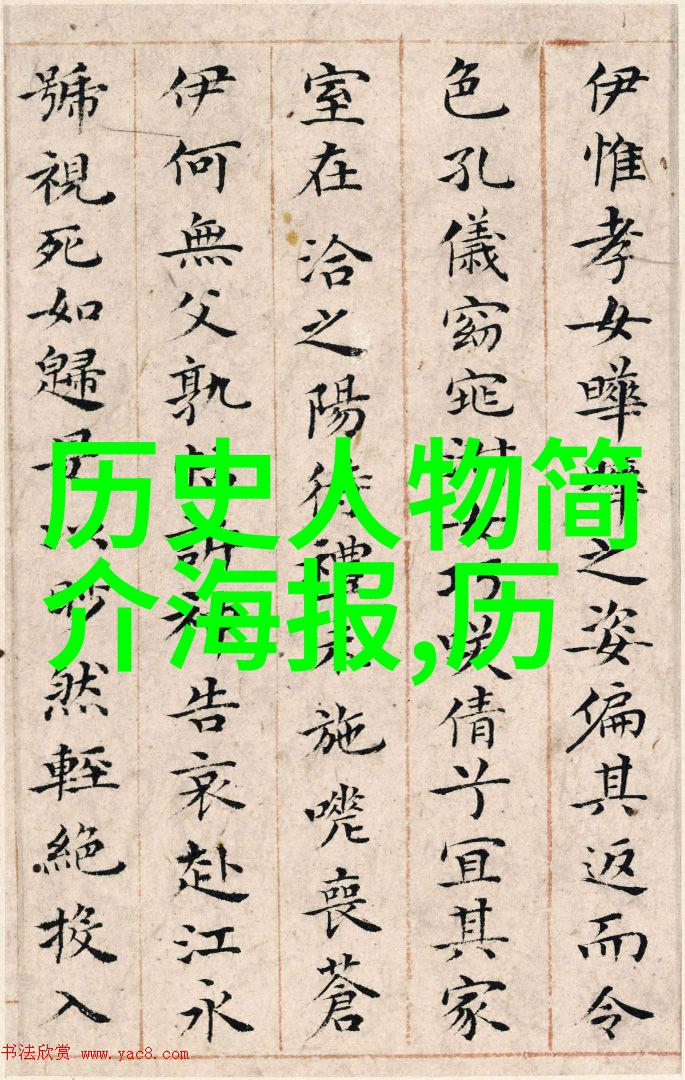 伊惟孝女曄曄之姿偏其返而令
色孔儀窈窕淑女巧咲倩兮宜其家
室在洽之陽待禮未施嗟喪蒼
伊何無父孰怙訴神告哀赴江永
號視死如歸是以眇然輕絕投入
历史人物简
介海报,历
书法欣赏 www.yac8.com